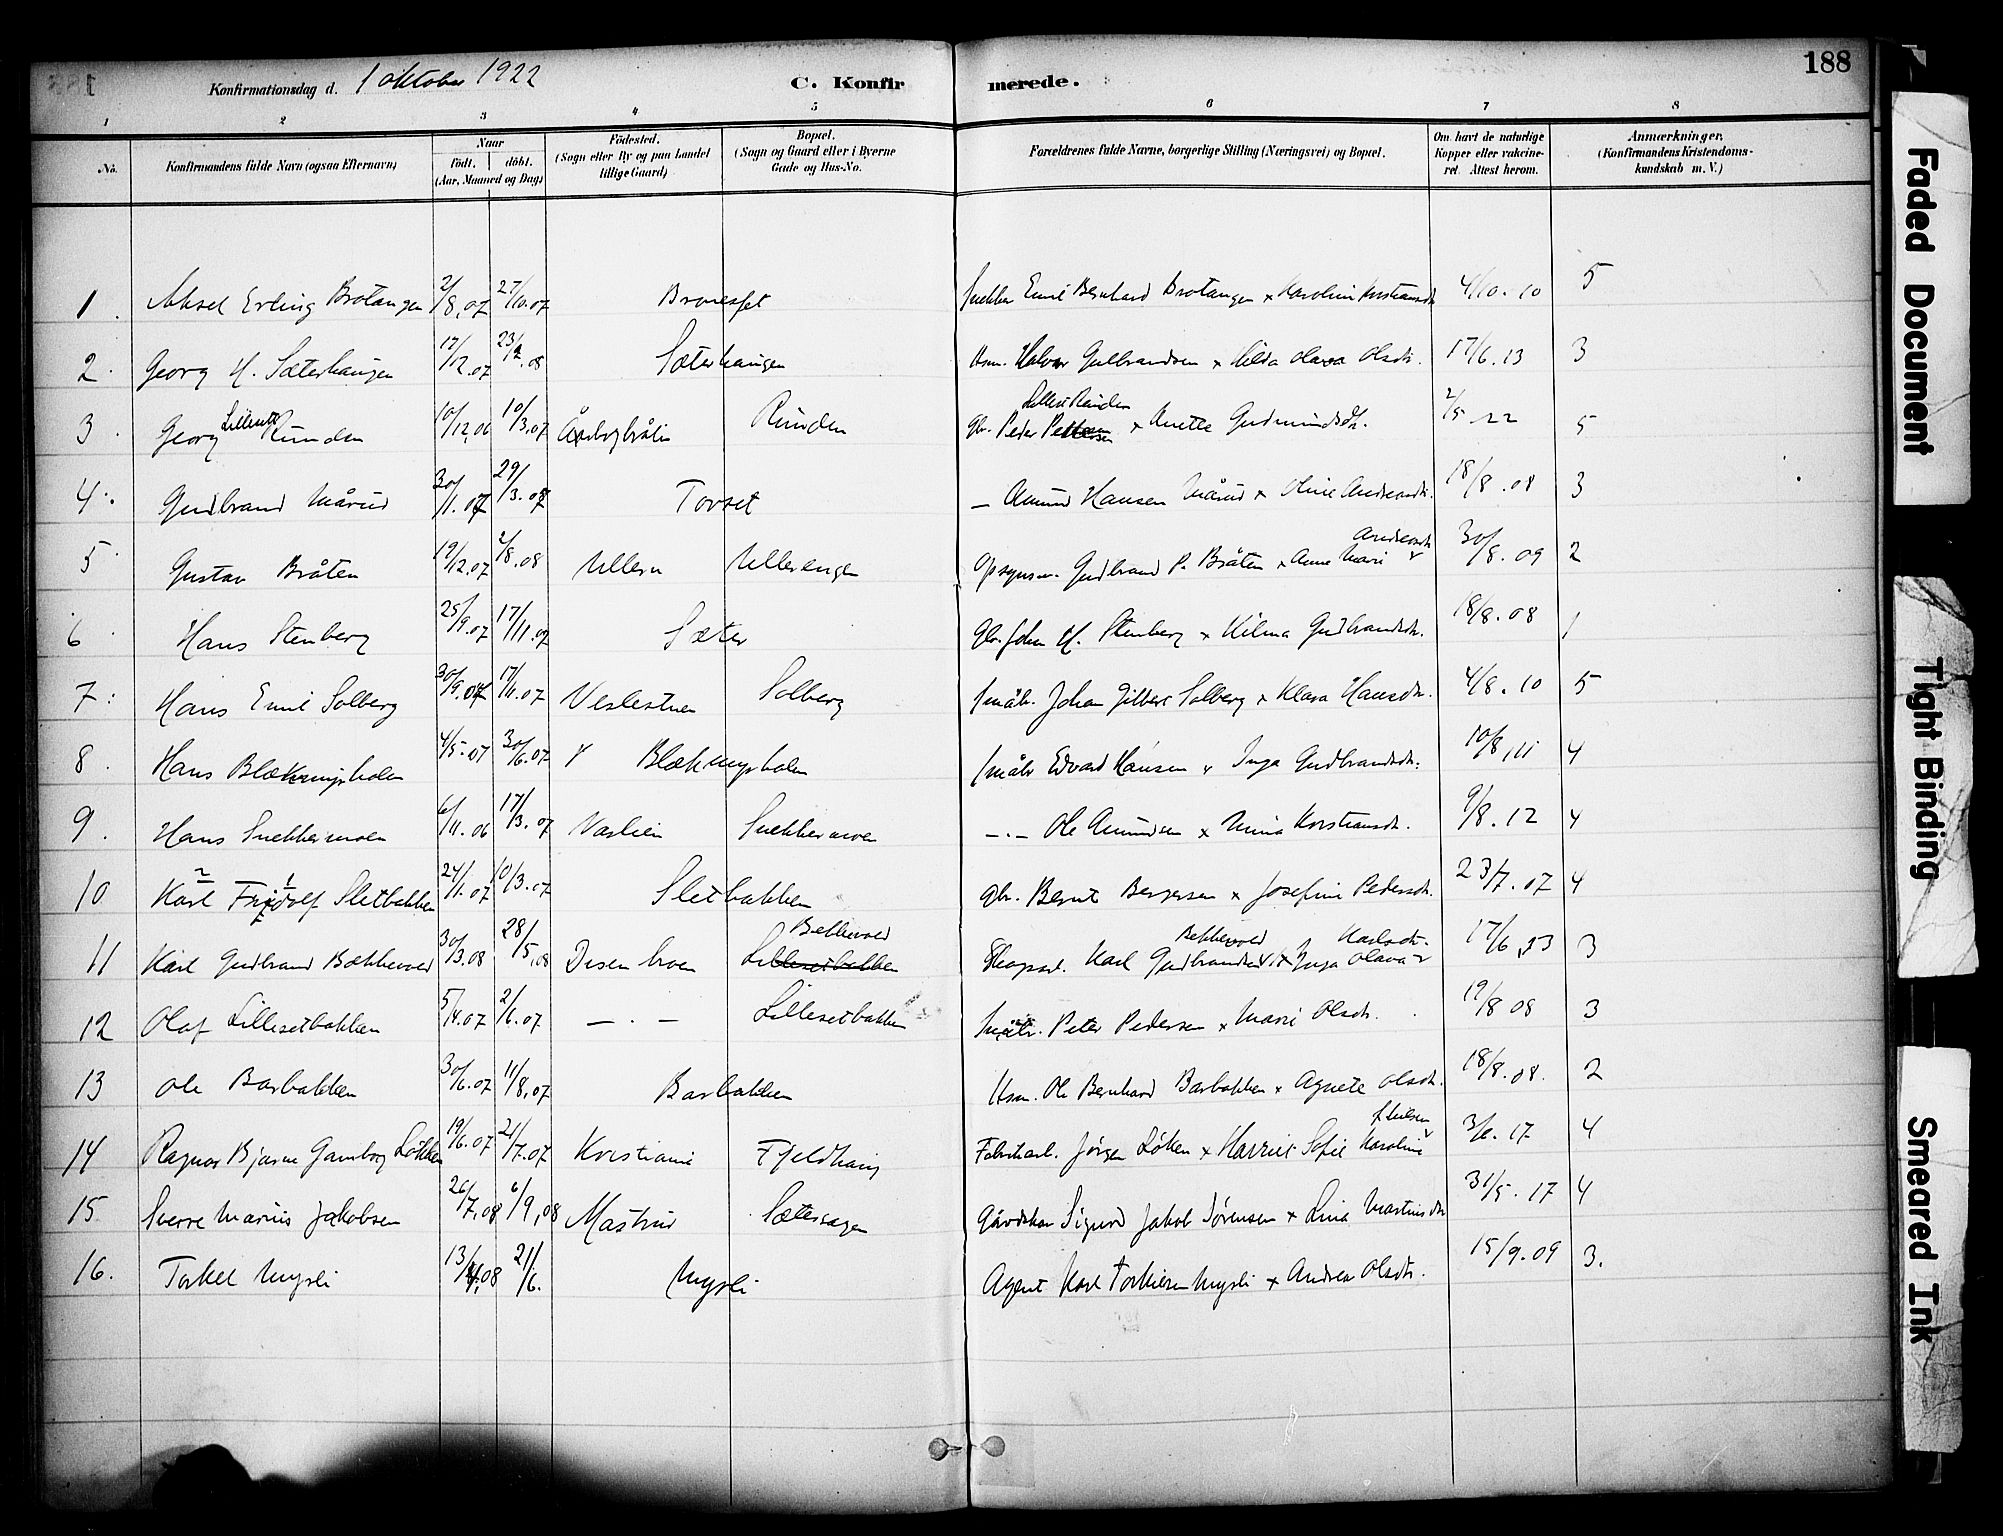 188
Konfirmationsdag d. 1 oktober 1922 C. Konfirmerede.
1 2 3 4 5 6 7 8
No. Konfirmandens fulde Navn (ogsaa Efternavn) Naar födt. döbt. (Aar, Maaned og Dag) Födested. (Sogn eller By og paa Landet tillige Gaard) Bopæl. (Sogn og Gaard eller i Byerne Gade og Hus-No. Forældrenes fulde Navne, borgerlige Stilling (Næringsvei) og Bopæl. Om havt de naturlige Kopper eller vakcineret. Attest herom. Anmærkninger. (Konfirmandens Kristendomskundskab m. V.)
1. Aksel Erling Brotangen 2/8.07 27/10.07 Emil Bernhard Brotangen x Karoline 4/10.10 5
2. Georg H. Sæterhaugen 17/12.07 23/2.08 Sæterhaugen Hsm. Halvor Gulbrandsen x Hilda Olava Olsdtr. 17/6.13 3
3. Georg Lilleset Runden 10/12.06 10/3.07 Runden Gbr. Peder Pettersen Lilleset Runden x Anette Gudmundsdtr. 2/5 22 5
4. Gudbrand Mårud 30/1.07 29/3.07 Torset — Amund Hansen Mårud x Oline Andreasdtr. 18/8.08 3
5. Gustav Bråten 19/12.07 2/8.08 Ullern Ullerengen Opsynsm. Gudbrand P. Bråten x Anne Mari Andreasdtr 30/8.09 2
6. Hans Stenberg 25/9.07 17/11.07 Sæter Gbr. John H. Stenberg x Hilma Gudbrandsdtr. 18/8.08 1
7. Hans Emil Solberg 30/9.07 17/11.07 Veslestuen Solberg Småbr. Johan Gilbert Solberg x Klara Hansdtr. 4/8.10 5
8. Hans Blækmyrholen 4/5.07 30/6.07 Blækmyrholen Småbr Edvard Hansen x Inga Gudbrandsdtr. 10/8.11 4
9. Hans Snekkermoen 6/11.06 17/3.07 Snekkermoen —.— Ole Amundsen x Mina Kristiansdtr. 9/8.12 4
10 Karl Fridolf Sletbakken 24/1.07 10/3.07 Sletbakken Gbr. Bernt Bergersen x Josefine Pedersdtr. 23/7.07 4
11 Karl Gudbrand Bækkevold 30/3.08 28/5.08 Disen Lillesetbakken Bekkevold Skogsarb. Karl Gudbrandsen Bekkevold x Inga Olava Karlsdtr. 17/6.13 3
12 Olaf Lillesetbakken 5/4.07 2/6.07 —.— Lillesetbakken Småbr. Peter Pedersen x Marie Olsdtr. 19/8 08 3
13 Ole Barbakken 30/6.07 11/8.07 Barbakken Hsm. Ole Bernhard Barbakken x Agnete Olsdtr. 18/8.08. 2
14 Ragnar Bjarne Gamborg Løkken 19/6.07 21/7.07 Kristiania Fjeldhaug Fabrikarb. Jörgen Löken x Harriet Sofie Karoline 3/6.17 4
15. Sverre Marius Jakobsen 26/7.08 6/9.08 Mastrud Sætersagen Gårdskar Sigurd Jakob Sørensen x Lina Martinsdtr 31/5.17 4
16. Torkel Myrli 13/4.08 21/6. Myrli Agent Karl Torkilsen Myrli x Andrea Olsdtr. 15/9.09 3.
Faded Document
Tight Binding
Smeared Ink